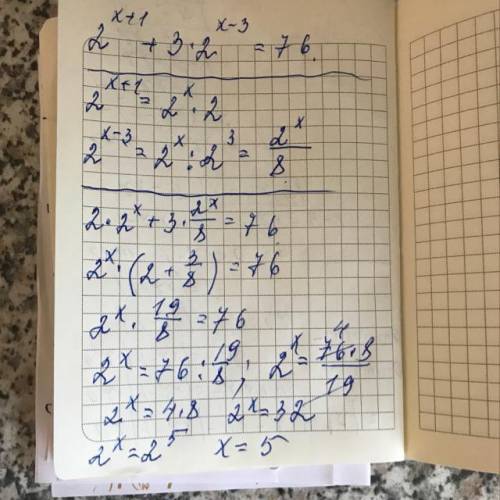 2^(x+1) + 3·2^(x-3) = 76.
2^(x+1) = 2^x · 2
2^(x-3) = 2^x : 2^3 = 2^x/8
2·2^x + 3·2^x/8 = 76
2^x·(2 + 3/8) = 76
2^x · 19/8 = 76
2^x = 76 : 19/8; 2^x = 76^4·8/19
2^x = 4·8 2^x = 32
2^x = 2^5 x = 5